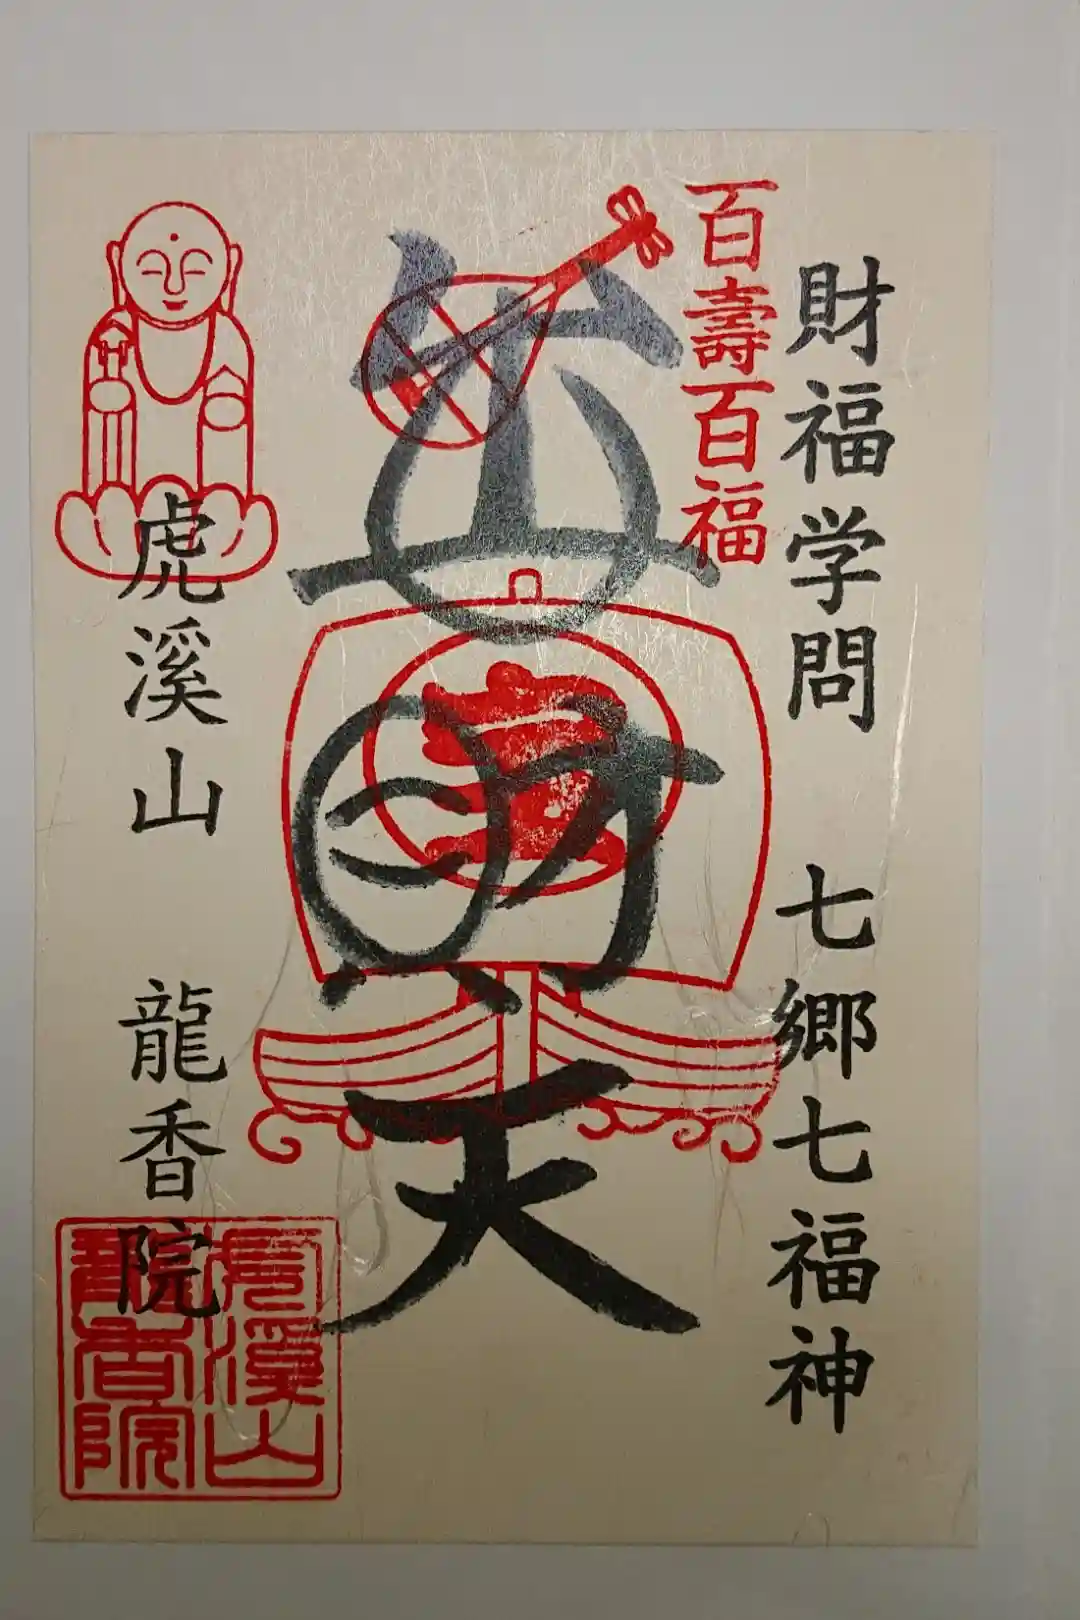 財福学問 七郷七福神
百壽百福
弁財天
虎溪山 龍香院
虎溪山
龍香院